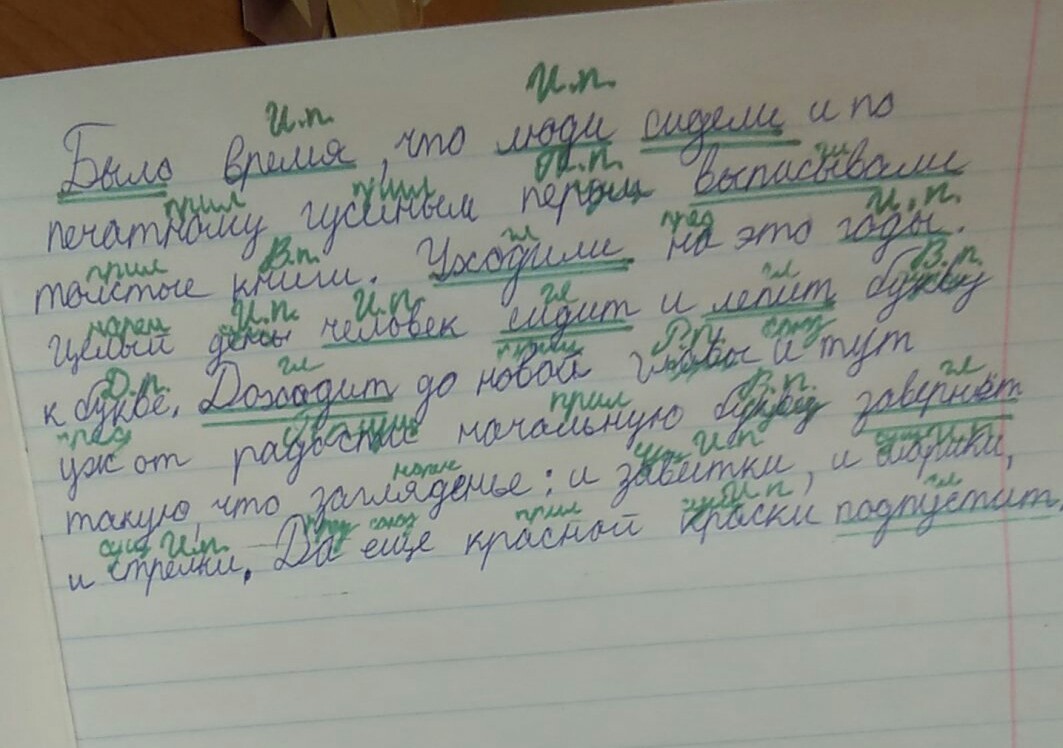 И.п. И.п.
Было время, что люди сидели и по
прил прил П.п. гл
печатному гусиным пером выписывали
прил В.п. гл пред И.п.
толстые книги. Уходили на это годы.
нареч И.п. И.п. гл гл В.п.
Целый день человек сидит и лепит букву
Д.п. гл прил Р.п. союз
к букве. Доходит до новой главы и тут
пред прил В.п. гл
уж от радости начальную букву завернёт
нареч И.п
такую, что загляденье: и завитки, и шарики,
сущ И.п. союз прил И.п гл
и стрелки. Да еще красной краски подпустит